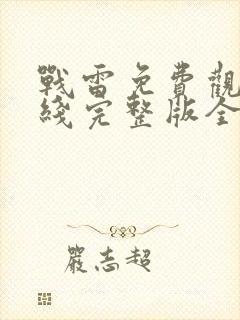 戰雷免費觀
綫完整版全
嚴志超